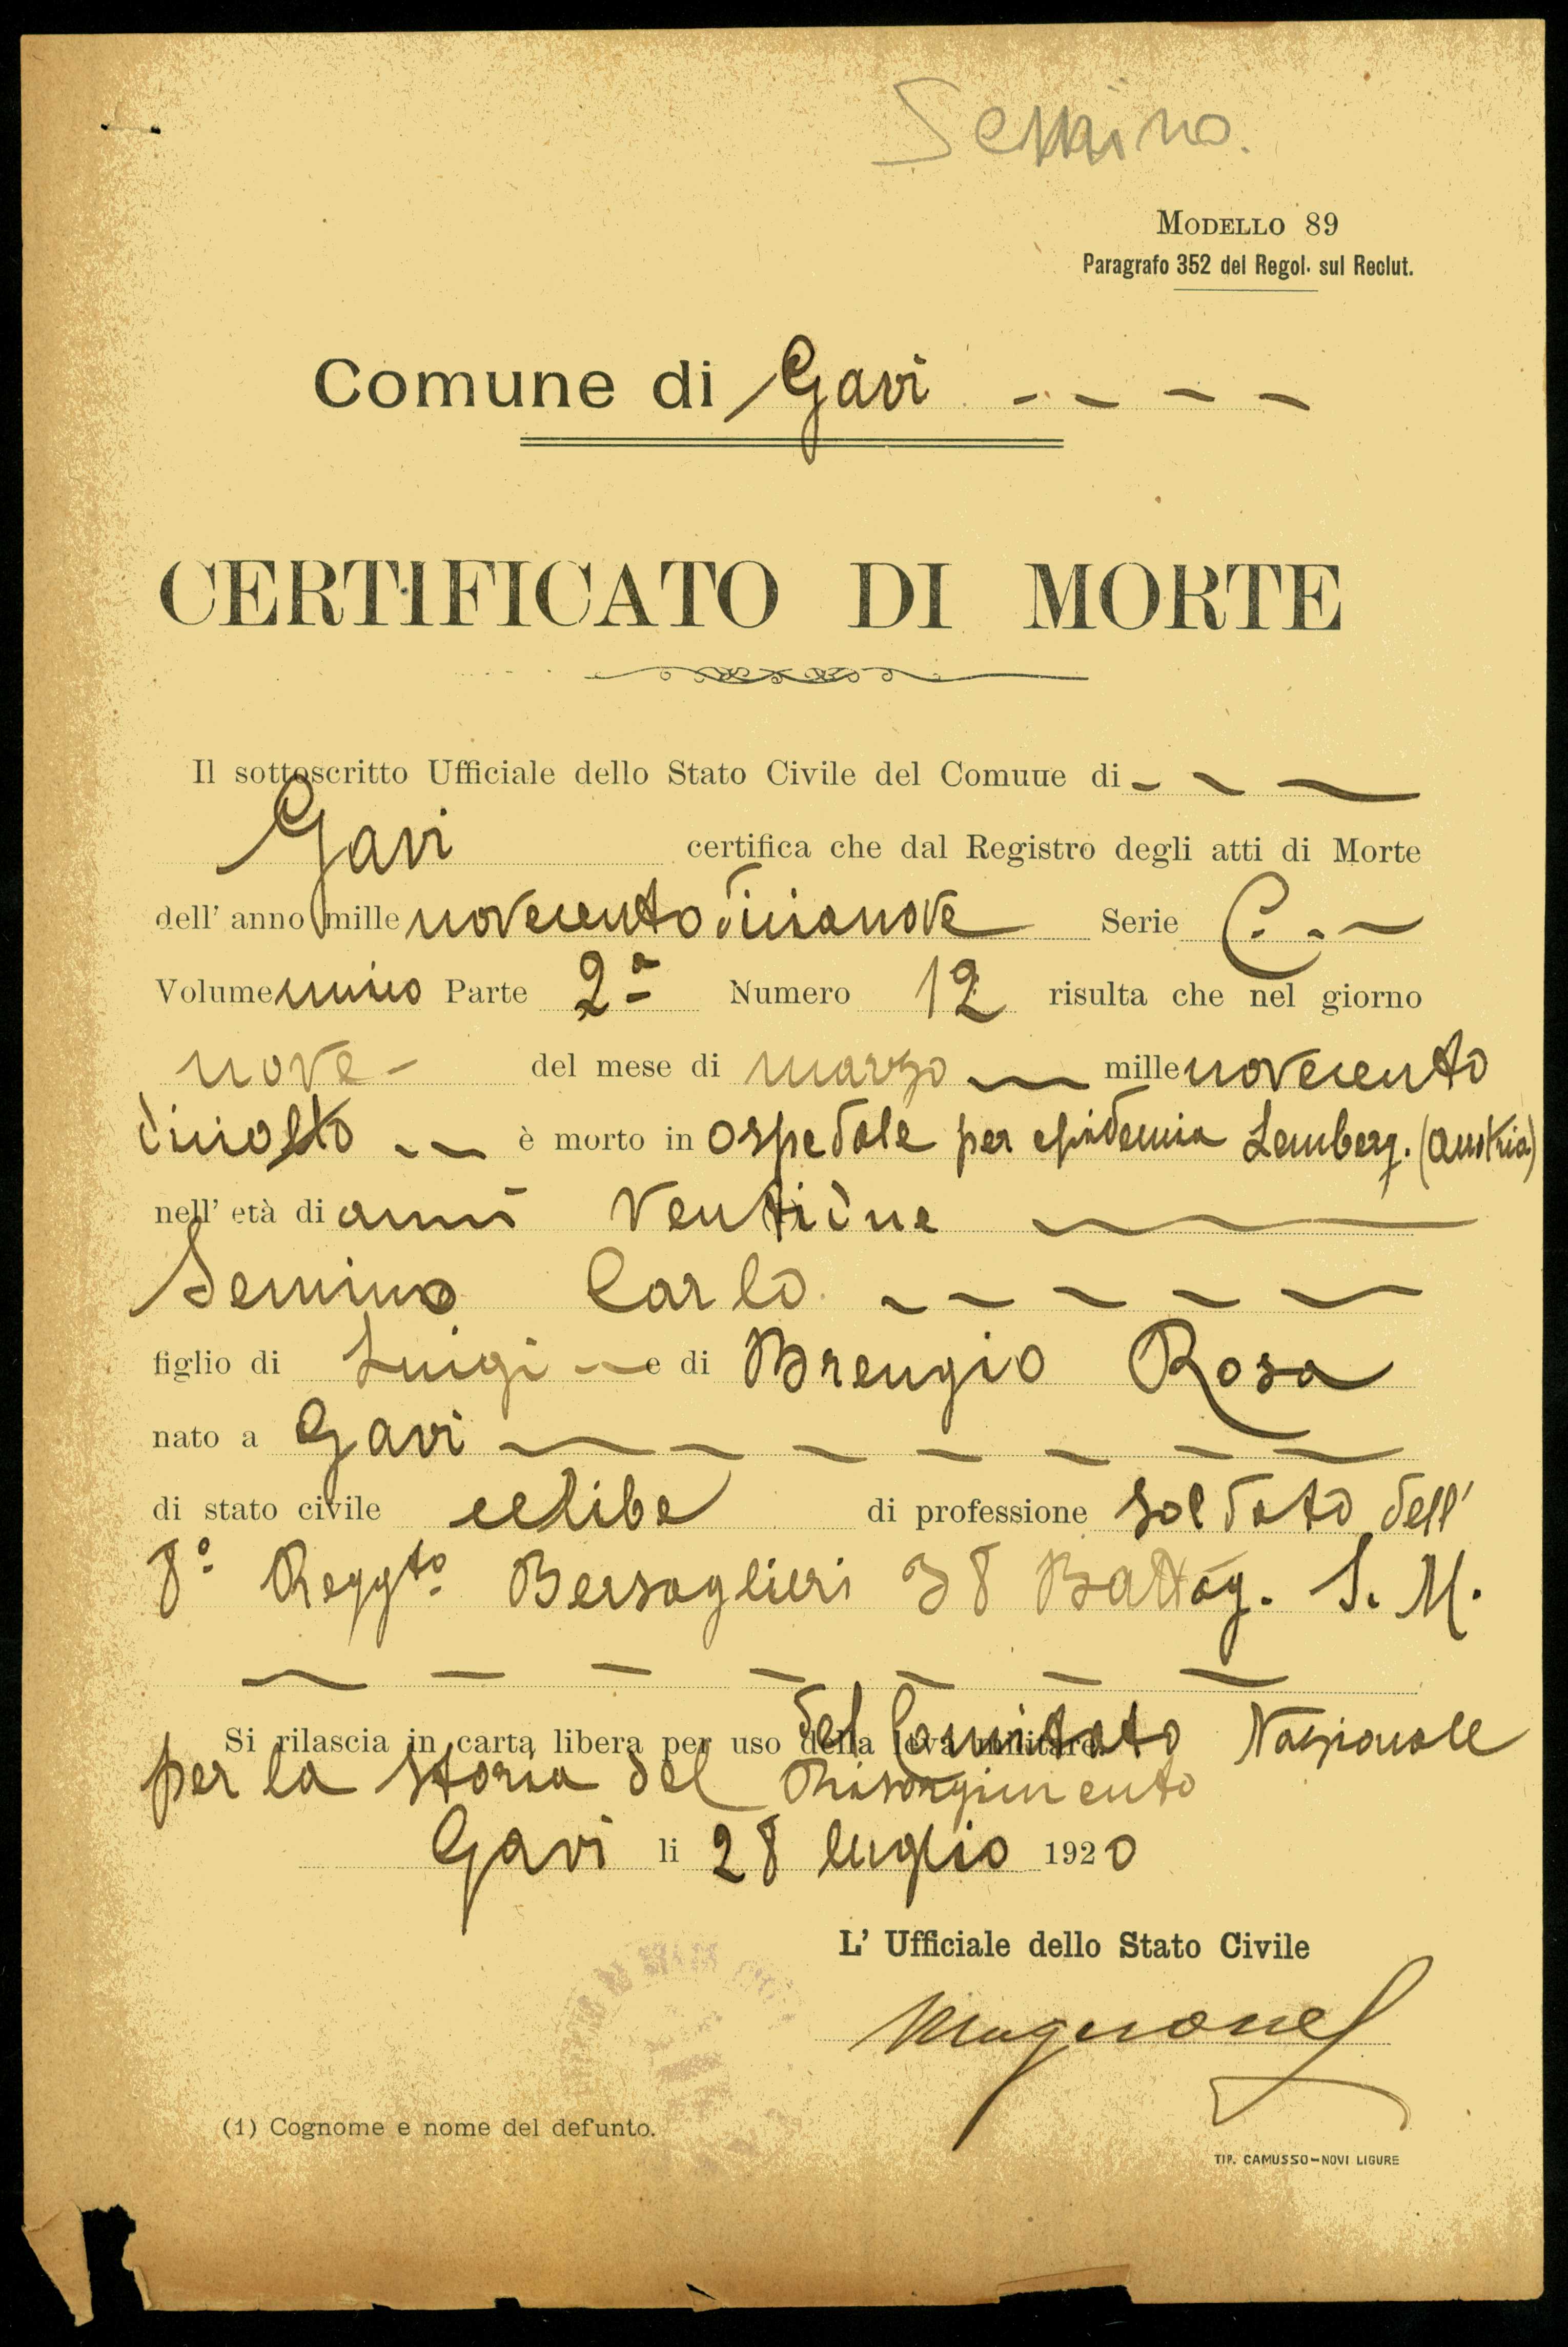 Semino.
MODELLO 89
Paragrafo 352 del Regol. sul Reclut.
Comune di Gavi
CERTIFICATO DI MORTE
Il sottoscritto Ufficiale dello Stato Civile del Comune di
Gavi certifica che dal Registro degli atti di Morte
dell' anno mille novecento dicianove Serie C.
Volume unico Parte 2ª Numero 12 risulta che nel giorno
nove - del mese di marzo mille novecento
diciotto è morto in ospedale per epidemia Lemberg. (Austria)
nell' età di anni ventidue
Semino Carlo
figlio di Luigi e di Brengio Rosa
nato a Gavi
di stato civile celibe di professione soldato dell'
8º Reggto Bersaglieri 38 Battag. S. M.
Si rilascia in carta libera per uso della leva militare. del Comitato Nazionale
per la storia del Risorgimento
Gavi li 28 luglio 1920
L' Ufficiale dello Stato Civile
(1) Cognome e nome del defunto.
TIP. CAMUSSO-NOVI LIGURE